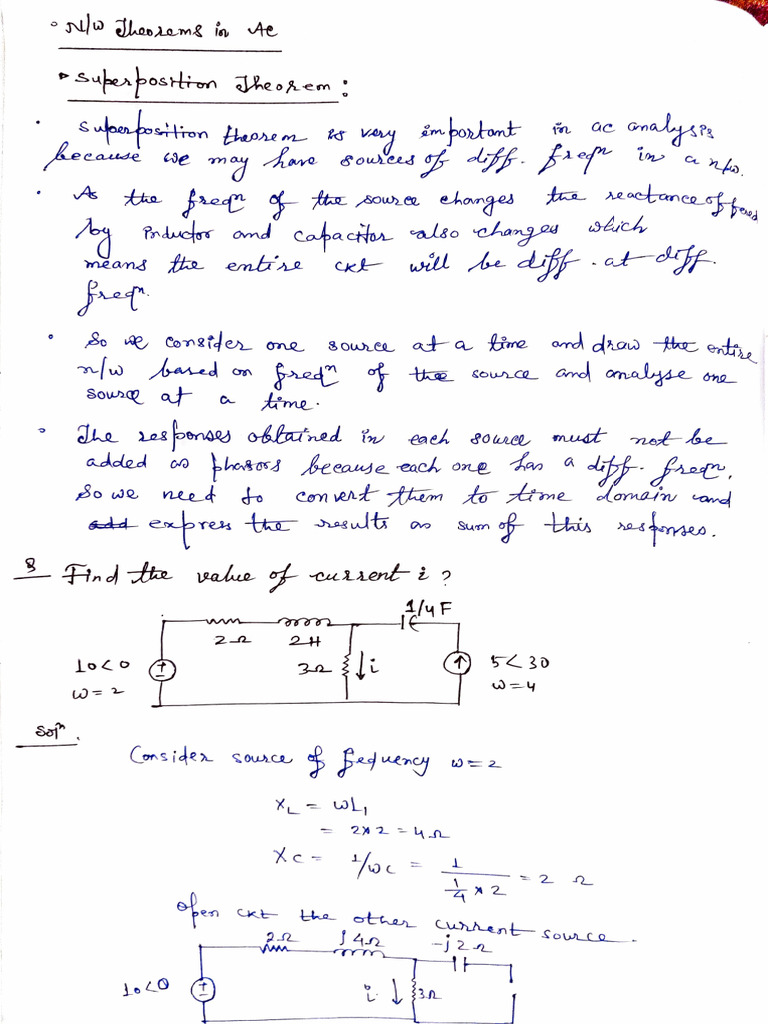 ° N/W Theorems in AC
• Superposition Theorem :
• Superposition theorem is very important in ac analysis
because we may have sources of diff. freqn in a n/w.
• As the freqn of the source changes the reactance offered
by inductor and capacitor also changes which
means the entire ckt will be diff. at diff.
freqn.
• So we consider one source at a time and draw the entire
n/w based on freqn of the source and analyse one
source at a time.
• The responses obtained in each source must not be
added as phasors because each one has a diff. freqn.
So we need to convert them to time domain and
add express the results as sum of this responses.
Q Find the value of current i ?
1/4 F
2Ω 2H
10<0 3Ω i 5<30
ω=2 ω=4
Solⁿ.
Consider source of fequency ω=2
XL = ωL1
= 2*2 = 4Ω
XC = 1/ωC = 1/(1/4 * 2) = 2 Ω
open ckt the other current source.
2Ω j4Ω -j2Ω
10<0 i 3Ω